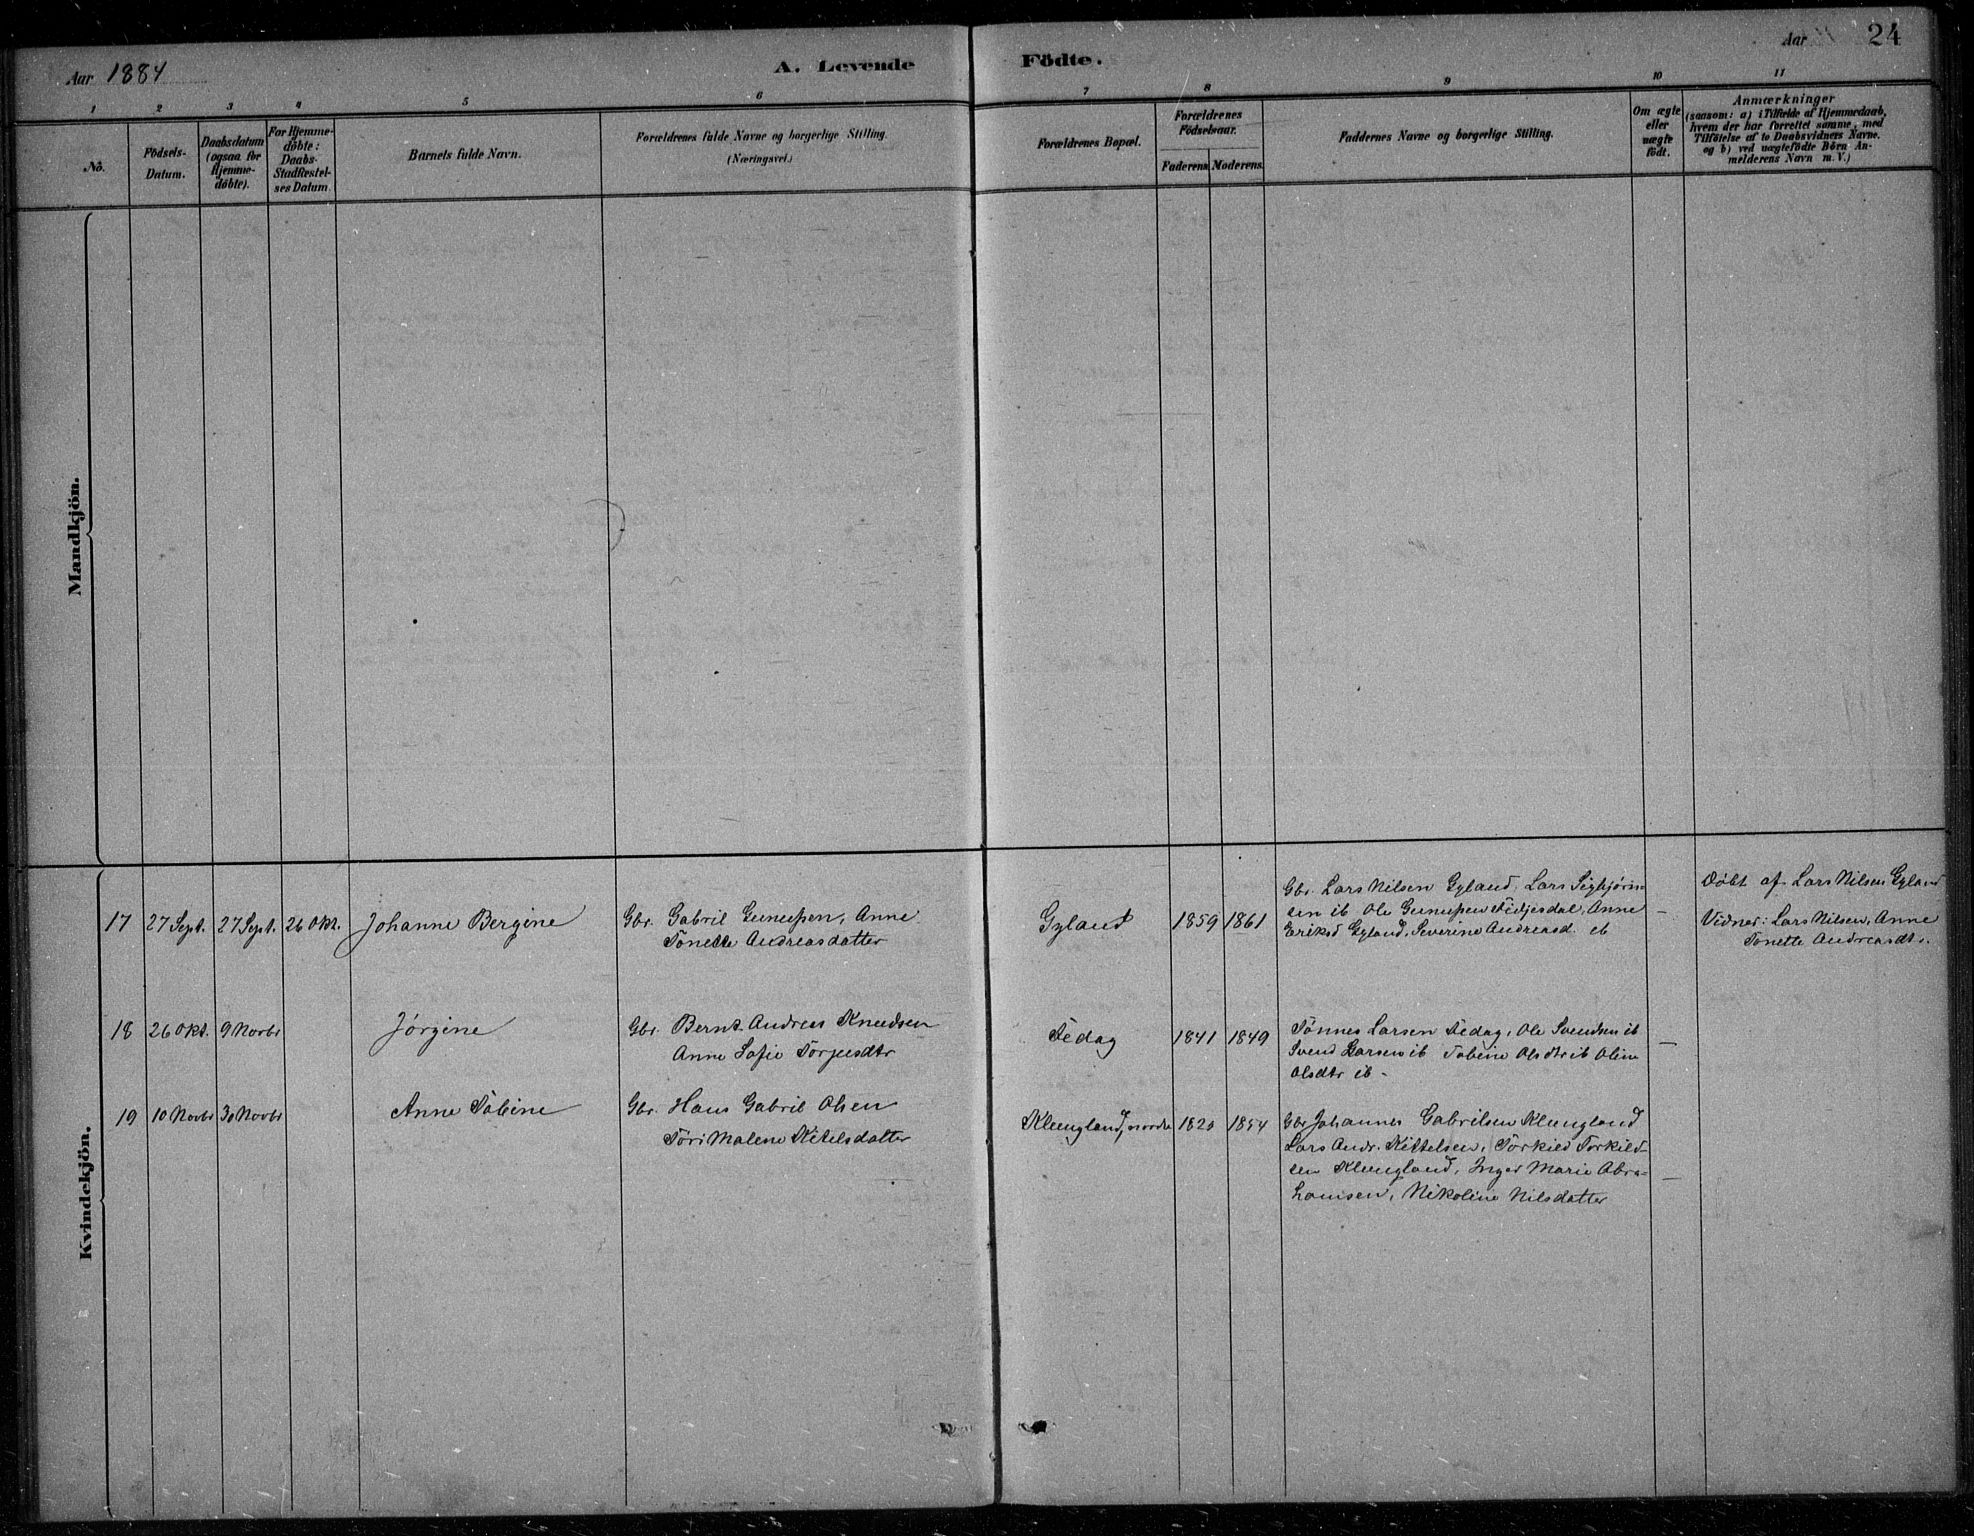 Aar 1884
A. Levende
Födte.
Aar
24
1 2 3 4 5 6 7 8 9 10 11
No.
Födsels-
Datum.
Daabsdatum
(ogsaa for
Hjemme-
döbte).
For Hjemme-
döbte:
Daabs-
Stadfæstel-
ses Datum.
Barnets fulde Navn.
Forældrenes fulde Navne og borgerlige Stilling.
(Næringsvei.)
Forældrenes Bopæl.
Forældrenes
Födselsaar.
Faderens. Moderens.
Faddernes Navne og borgerlige Stilling.
Om ægte
eller
uægte
födt.
Anmærkninger
(saasom: a) i Tilfælde af Hjemmedaab,
hvem der har forrettet samme, med
Tilföielse af to Daabsvidners Navne.
og b) ved uægtefödte Börn An-
melderens Navn m. V.)
Mandkjön.
Kvindekjön.
17 27 Sept. 27 Sept. 26 Okt. Johanne Bergine
Gbr. Gabril Gunufsen, Anne
Tonette Andreasdatter
Gyland 1859 1861
Gbr. Lars Nilsen Gyland, Lars Sigbjørn-
sen ib Ole Gunufsen Fidjesdal, Anne
Eriksd Gyland, Severine Andreasd. ib
Döbt af Lars Nilsen Gyland
Vidner: Lars Nilsen, Anne
Tonette Andreasdt.
18 26 Okt. 9 Novbr Jørgine
Gbr. Bernt Andreas Knudsen
Anne Sofie Torjusdtr
Fedog 1841 1849
Tönnes Larsen Fedog, Ole Svendsen ib
Svend Larsen ib Tobine Olsdtr ib Oline
Olsdtr ib -
19 10 Novbr 30 Novbr Anne Tobine
Gbr. Hans Gabril Olsen
Töri Malene Kitelsdatter
Klungland, nordre 1820 1854
Gbr Johannes Gabrilsen Klungland
Lars Andr. Kittelsen, Torkild Torkild-
sen Klungland, Inger Marie Abra-
hamsen, Nikoline Nilsdatter